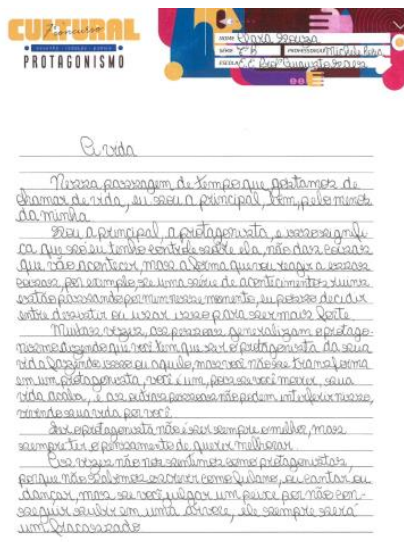 7º Concurso
CULTURAL
DESENHO • REDAÇÃO • POESIA
PROTAGONISMO
NOME Clara Souza
SÉRIE 7ºB PROFESSOR(A) Michele Rosa
ESCOLA E.E. Profº Augusto
A vida
Nessa passagem de tempo que gostamos de
chamar de vida, eu sou a principal, bem, pelo menos
da minha.
Sou a principal, a protagonista, e isso signifi-
ca que só eu tenho controle sobre ela, não das coisas
que vão acontecer, mas a forma que vou reagir a essas
coisas, por exemplo, se uma série de acontecimentos ruins
estão passando por mim nesse momento, eu posso decidir
entre desistir ou usar isso para ser mais forte.
Muitas vezes, as pessoas generalizam o protago-
nismo dizendo que você tem que ser o protagonista da sua
vida fazendo isso ou aquilo, mas você não se transforma
em um protagonista, você é um, pois se você morer, sua
vida acaba, e as outras pessoas não podem interferir nisso,
vivendo sua vida por você.
Ser o protagonista não é ser sempre o melhor, mas
sempre ter o pensamento de querer melhorar.
As vezes não nos sentimos como protagonistas,
porque não sabemos escrever como fulano, ou cantar ou
dançar, mas se você julgar um peixe por não con-
seguir subir em uma árvore, ele sempre será
um fracassado